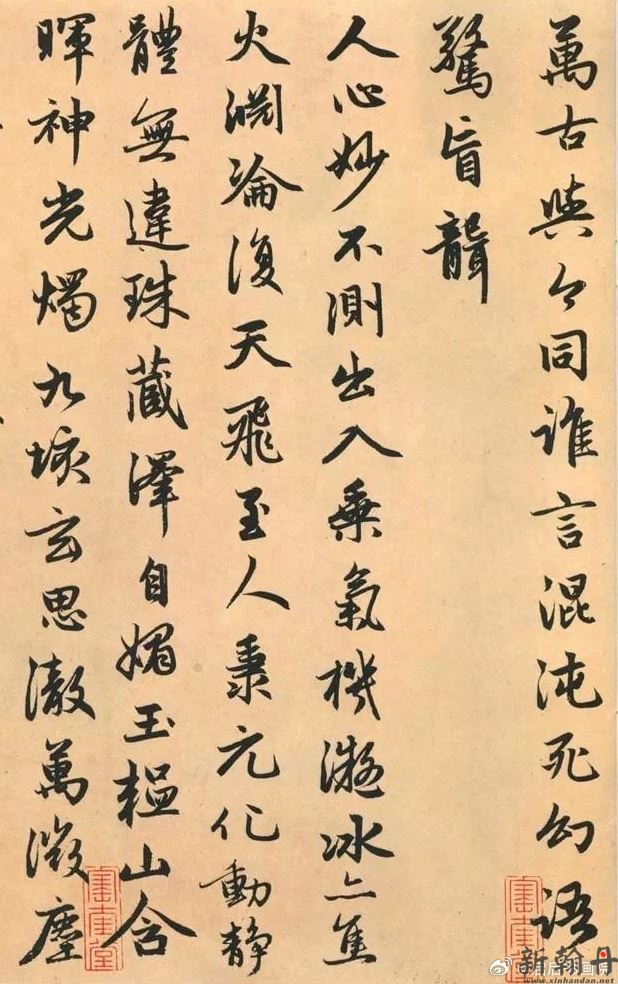 萬古與今同誰言混沌死幻語
驚盲聾
人心妙不測出入乘氣機凝冰亦焦
火淵淪復天飛至人秉元化動靜
體無違珠藏澤自媚玉韞山含
暉神光燭九垓玄思徹萬微塵
新翰丹
www.xinhandan.net